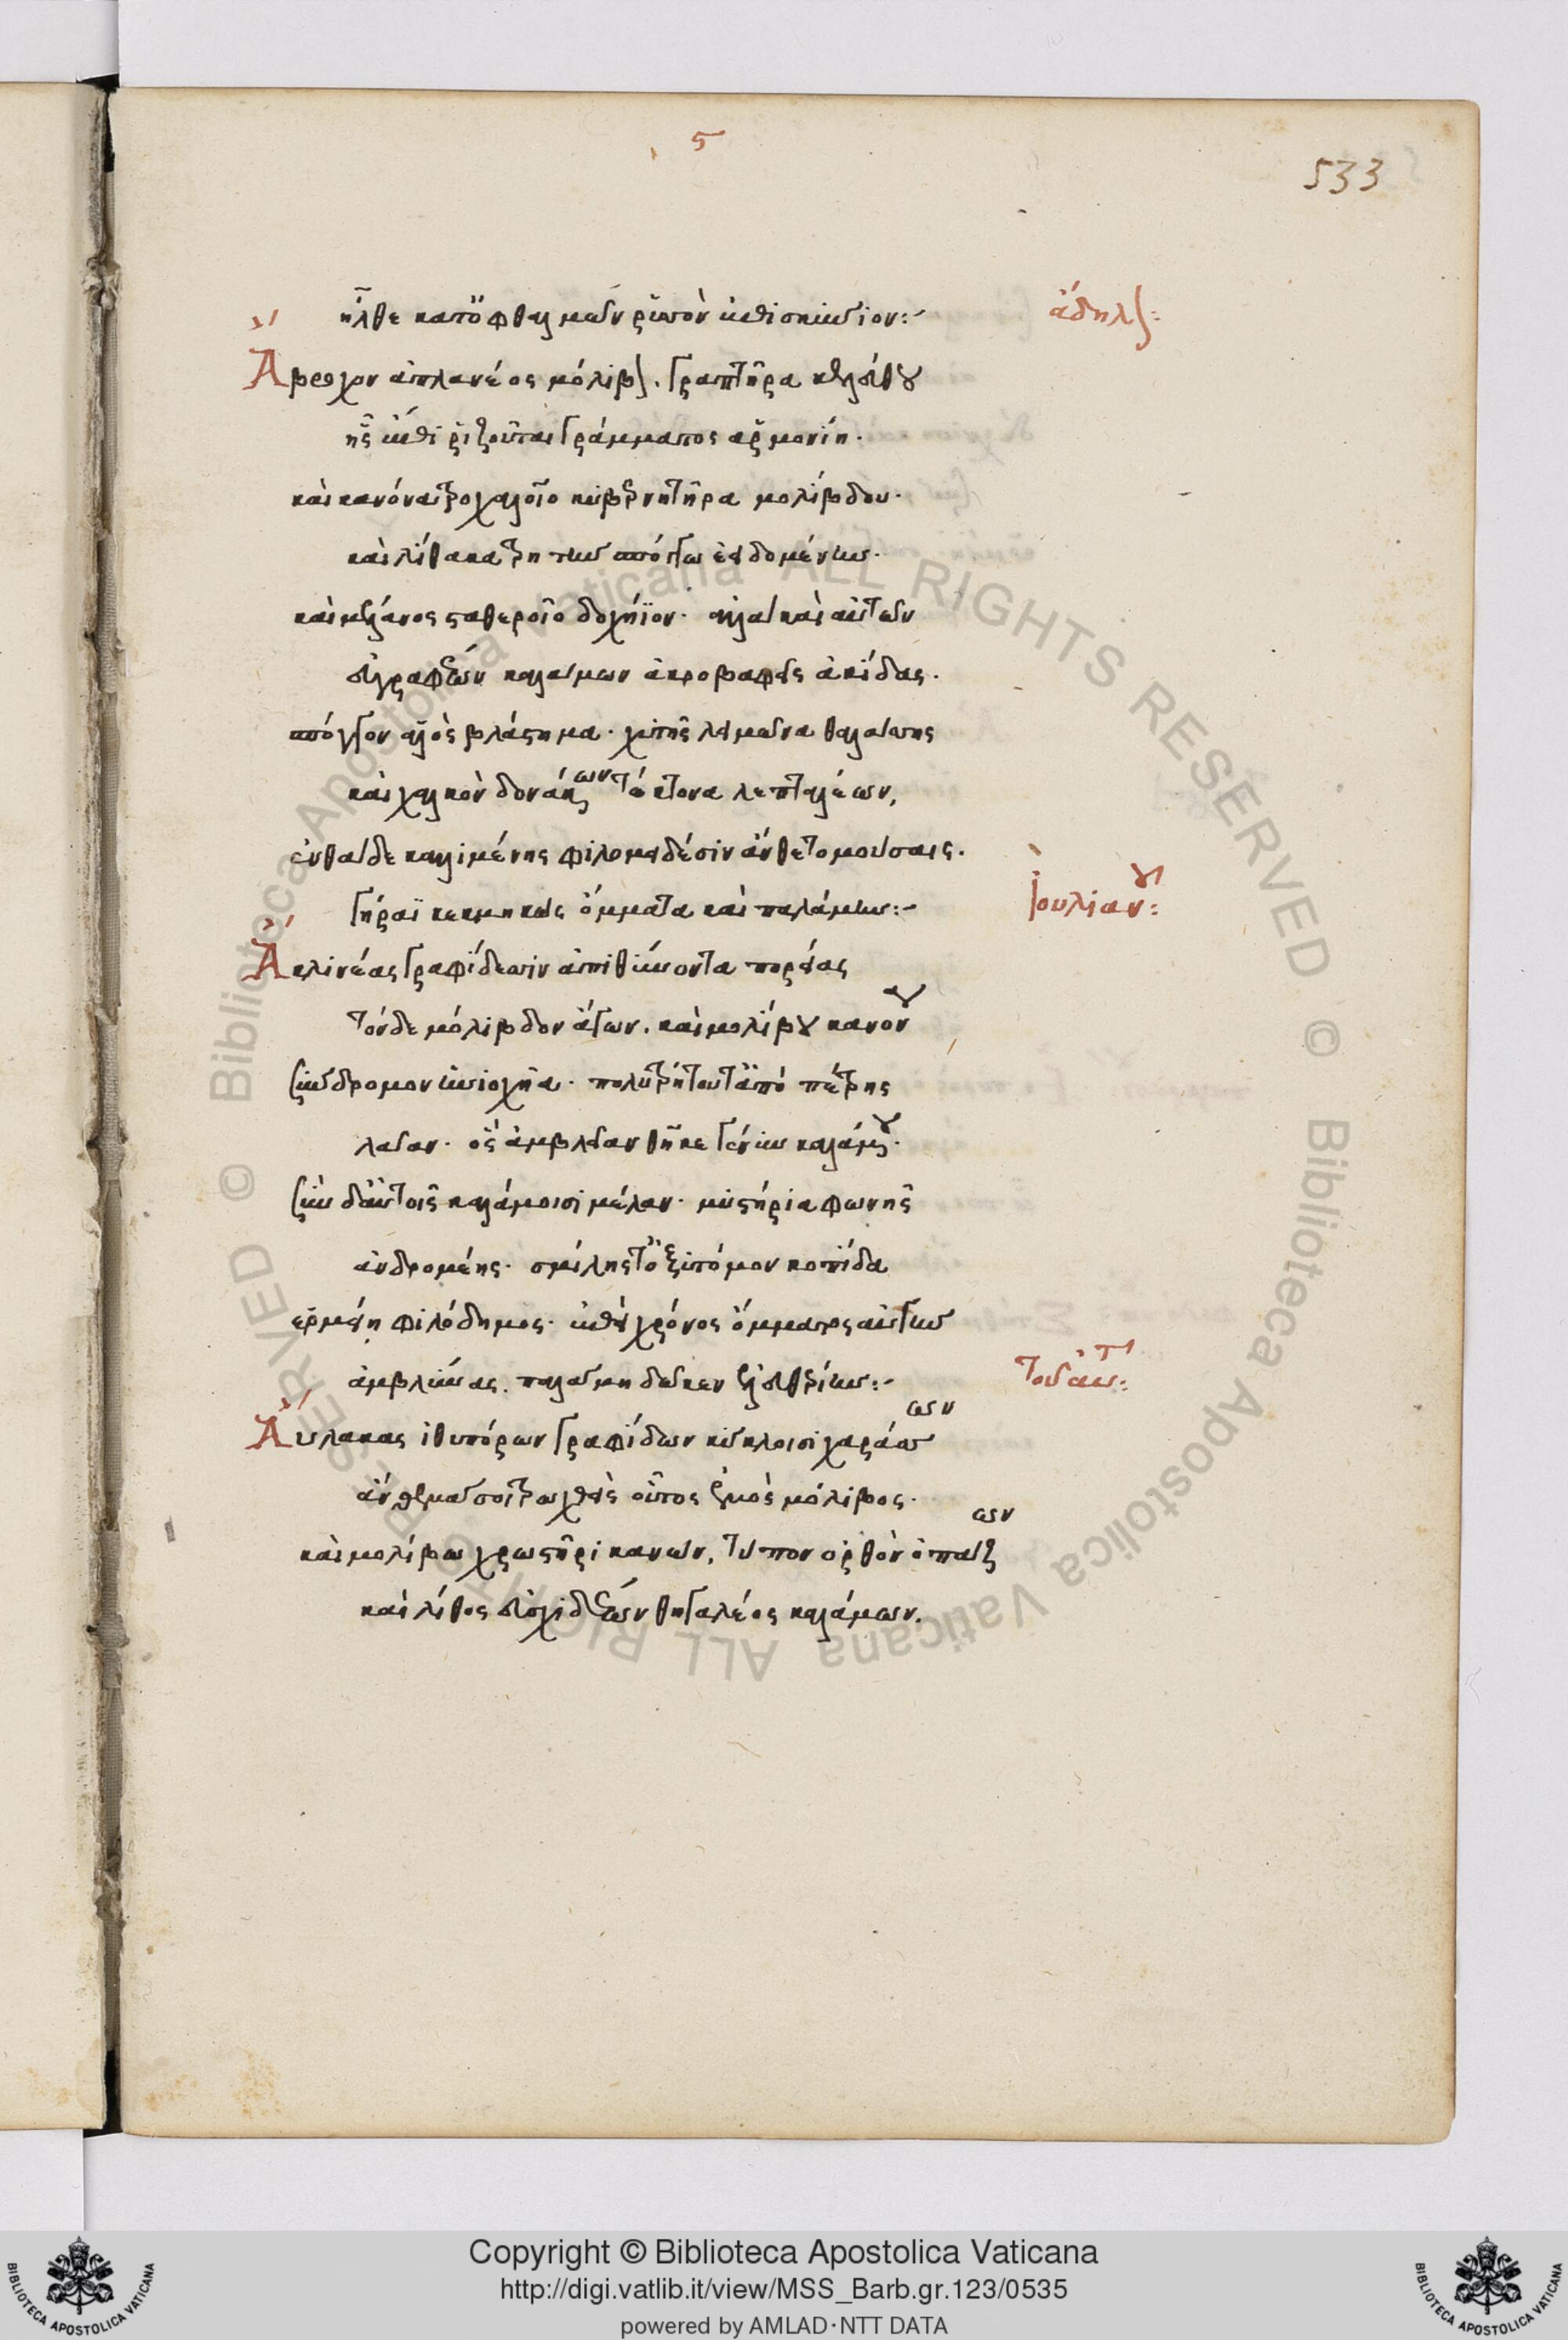 ς
533
ἦλθε κατ' ὀφθαλμῶν ῥυσὸν ἐπισκύνιον:-
ἄδηλον:
Ἄβροχον ἀπλανέος μόλιβον γραπτῆρα κελεύθου
ἧς ἔπι ῥιζοῦται γράμματος ἁρμονίη.
καὶ κανόνα τροχαλοῖο κυβερνητῆρα μολίβδου.
καὶ λίθακα τρητὴν σπόγγω εἰδομένην.
καὶ μέλανος σταθεροῖο δοχήϊον. ἀλλὰ καὶ αὐτῶν
εὐγραφέων καλάμων ἀκροβαφεῖς ἀκίδας.
σπόγγον ἁλὸς βλάστημα. χυτῆς λειμῶνα θαλάσσης
καὶ χαλκὸν δονάκων τέκτονα λεπταλέων,
ἐνθάδε καλλιμένης φιλομειδέσιν ἄνθετο μούσαις.
γήραϊ κεκμηκὼς ὄμματα καὶ παλάμην:-
Ἰουλιανοῦ:
Ἀκλινέας γραφίδεσσιν ἀπιθύνοντα πορείας
τόνδε μόλιβδον ἄγων. καὶ μολίβου κανόνα
σύνδρομον ἡνιοχῆα. πολυτρήτου τ' ἀπὸ πέτρης
λᾶαν. ὃς ἀμβλεῖαν θῆκε γένυν καλάμου.
σὺν δ' αὐτοῖς καλάμοισι μέλαν. μυστήρια φωνῆς
ἀνδρομέης. σμίλης τ' ὀξυτόμον κοπίδα
ἑρμείῃ φιλόδημος. ἐπεὶ χρόνος ὄμματος αὐγὴν
ἀμβλύνας. παλάμῃ δῶκεν ἐλευθερίην:-
τοῦ αὐτ:
Αὔλακας ἰθυπόρων γραφίδων κύκλοισι χαράσσων
ἄνθεμά σοι τροχόεις οὗτος ἐμὸς μόλιβος.
καὶ μολίβω χρωστῆρι κανών, τύπον ὀρθὸν ὀπάζων
καὶ λίθος εὐσχιδέων θηγαλέος καλάμων.
Copyright © Biblioteca Apostolica Vaticana
http://digi.vatlib.it/view/MSS_Barb.gr.123/0535
powered by AMLAD·NTT DATA